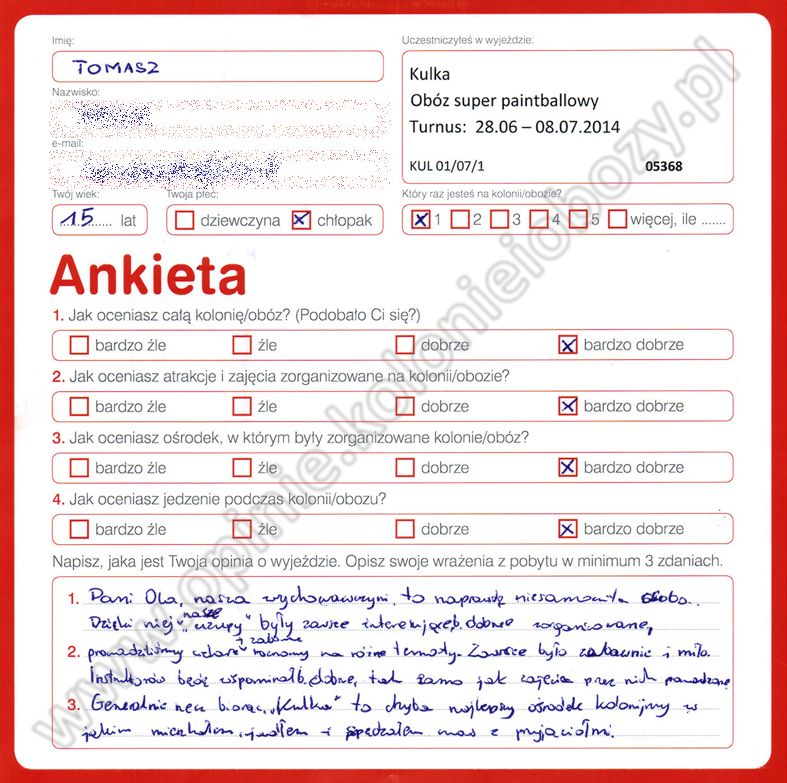 Imię:
TOMASZ
Nazwisko:
e-mail:
Twój wiek:
15 lat
Twoja płeć:
dziewczyna chłopak
Uczestniczyłeś w wyjeździe:
Kulka
Obóz super paintballowy
Turnus: 28.06 – 08.07.2014
KUL 01/07/1 05368
Który raz jesteś na kolonii/obozie?
1 2 3 4 5 więcej, ile .......
Ankieta
1. Jak oceniasz całą kolonię/obóz? (Podobało Ci się?)
bardzo źle źle dobrze bardzo dobrze
2. Jak oceniasz atrakcje i zajęcia zorganizowane na kolonii/obozie?
bardzo źle źle dobrze bardzo dobrze
3. Jak oceniasz ośrodek, w którym były zorganizowane kolonie/obóz?
bardzo źle źle dobrze bardzo dobrze
4. Jak oceniasz jedzenie podczas kolonii/obozu?
bardzo źle źle dobrze bardzo dobrze
Napisz, jaka jest Twoja opinia o wyjeździe. Opisz swoje wrażenia z pobytu w minimum 3 zdaniach.
1. Pani Ola, nasza wychowawczyni, to naprawdę niesamowita osoba.
Dzięki niej nasze były zawsze interesujące, b. dobrze zorganizowane,
2. prowadziliśmy i zabawne rozmowy na różne tematy. Zawsze było zabawnie i miło.
Instruktorów będę wspominał b. dobrze, tak samo jak zajęcia przez nich prowadzone
3. Generalnie rzecz biorąc, „Kulka" to chyba najlepszy ośrodek kolonijny w
jakim mieszkałem, jadłem i spędzałem czas z przyjaciółmi.
www.opinie.kolonieiobozy.pl